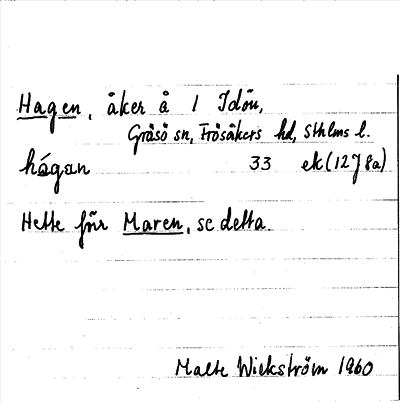 Hagen, åker å 1 Idön,
Gräsö sn, Frösåkers hd, Sthlms l.
hágan 33 ek (1278a)
Hette förr Maren, se detta.
Malte Wickström 1960